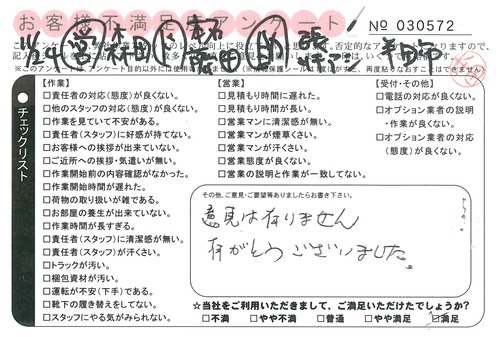 お客様不満足度アンケート
№ 030572
11/24
チェックリスト
【作業】
□責任者の対応(態度)が良くない。
□他のスタッフの対応(態度)が良くない。
□作業を見ていて不安がある。
□責任者(スタッフ)に好感が持てない。
□お客様への挨拶が出来ていない。
□ご近所への挨拶・気遣いが無い。
□作業開始前の内容確認がなかった。
□作業開始時間が遅れた。
□荷物の取り扱いが雑である。
□お部屋の養生が出来ていない。
□作業時間が長すぎる。
□責任者(スタッフ)に清潔感が無い。
□責任者(スタッフ)が汗くさい。
□トラックが汚い。
□梱包資材が汚い。
□運転が不安(下手)である。
□靴下の履き替えをしてない。
□スタッフにやる気がみられない。
【営業】
□見積もり時間に遅れた。
□見積もり時間が長い。
□営業マンに清潔感が無い。
□営業マンが煙草くさい。
□営業マンが汗くさい。
□営業態度が良くない。
□営業の説明と作業が一致してない。
【受付・その他】
□電話の対応が良くない。
□オプション業者の説明・作業が良くない。
□オプション業者の対応(態度)が良くない。
その他、ご意見・ご要望等ありましたらお書き下さい。
意見は有りません
有がとうございました。
☆当社をご利用いただきまして、ご満足いただけたでしょうか?
□不満 □やや不満 □普通 □やや満足 ☑満足